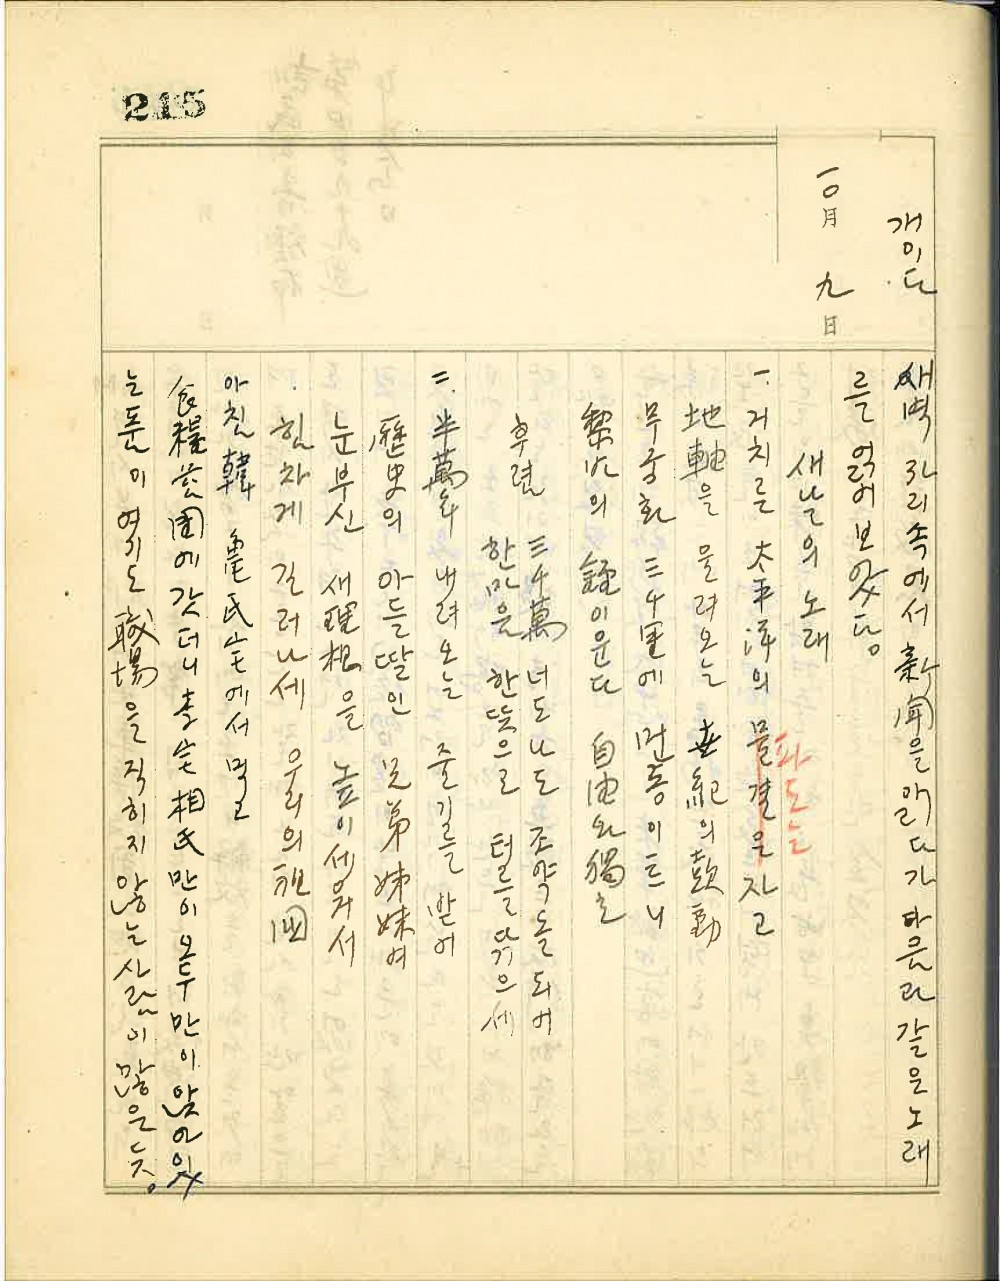 215
개이다
一〇月 九日
새벽 자리속에서 新聞을 읽다가 다음과 같은 노래
를 얽어 보았다。
새날의 노래
一. 거치른 太平洋의 물결은 자고
파도는
地軸을 울려오는 世紀의 鼓動
무궁화 三千里에 먼동이 트니
黎明의 鍾이 운다 自由와 獨立
후렴 三千萬 너도 나도 조약돌 되어
한마음 한뜻으로 터를 닦으세
二. 半萬年 내려오는 줄기를 받어
歷史의 아들 딸인 兄弟姉妹여
눈부신 새 理想을 높이 세워서
힘차게 길러나세 우리의 祖國
아침 韓 氏宅에서 먹고
食糧公團에 갓더니 李 相氏만이 오두만이 앉어있
는 둣이 여기도 職場을 직히지 않는 사람이 많은 듯。